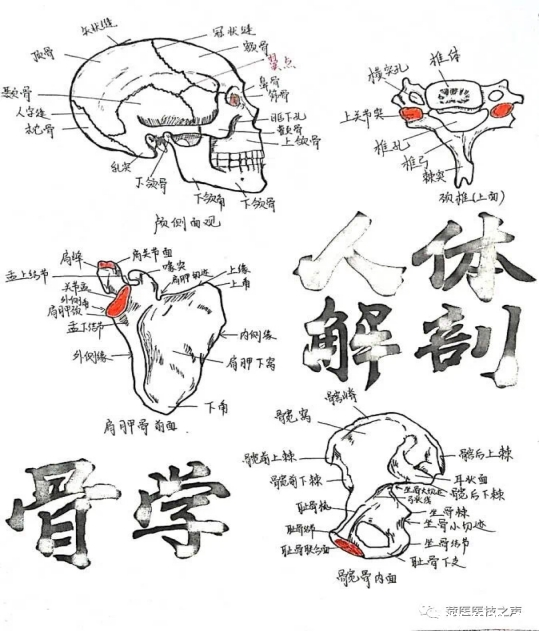 矢状缝
冠状缝
顶骨
额骨
翼点
颞骨
鼻骨
筛骨
人字缝
枕骨
眶下孔
颧骨
上颌骨
乳突
下颌骨
下颌角
下颌骨
颅侧面观
横突孔
椎体
上关节突
椎孔
椎弓
棘突
颈椎(上面)
人体
解剖
肩峰
肩关节面
喙突
肩胛切迹
上缘
上角
盂上结节
关节盂
外侧角
肩胛颈
盂下结节
外侧缘
内侧缘
肩胛下窝
下角
肩胛骨前面
骨学
髂嵴
髂窝
髂前上棘
髂后上棘
髂前下棘
耳状面
坐骨大切迹
髂后下棘
弓状线
耻骨梳
坐骨棘
坐骨小切迹
耻骨结节
坐骨结节
耻骨联合面
耻骨下支
髋骨内面
菏医医技之声